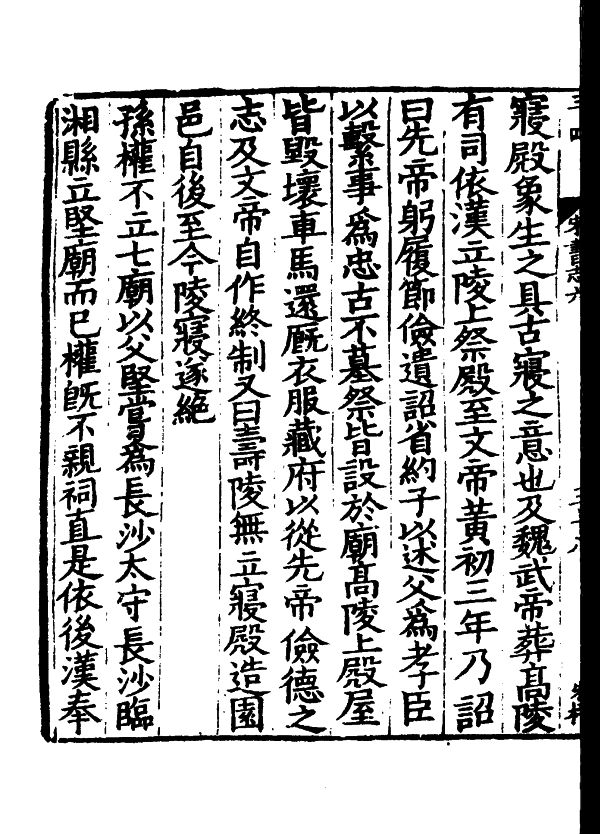 寢殿象生之具古寢之意也及魏武帝葬高陵
有司依漢立陵上祭殿至文帝黃初三年乃詔
曰先帝躬履節儉遺詔省約子以述父爲孝臣
以繫事爲忠古不墓祭皆設於廟高陵上殿屋
皆毀壞車馬還厩衣服藏府以從先帝儉德之
志及文帝自作終制又曰壽陵無立寢殿造園
邑自後至今陵寢遂絶
孫權不立七廟以父堅嘗爲長沙太守長沙臨
湘縣立堅廟而已權旣不親祠直是依後漢奉